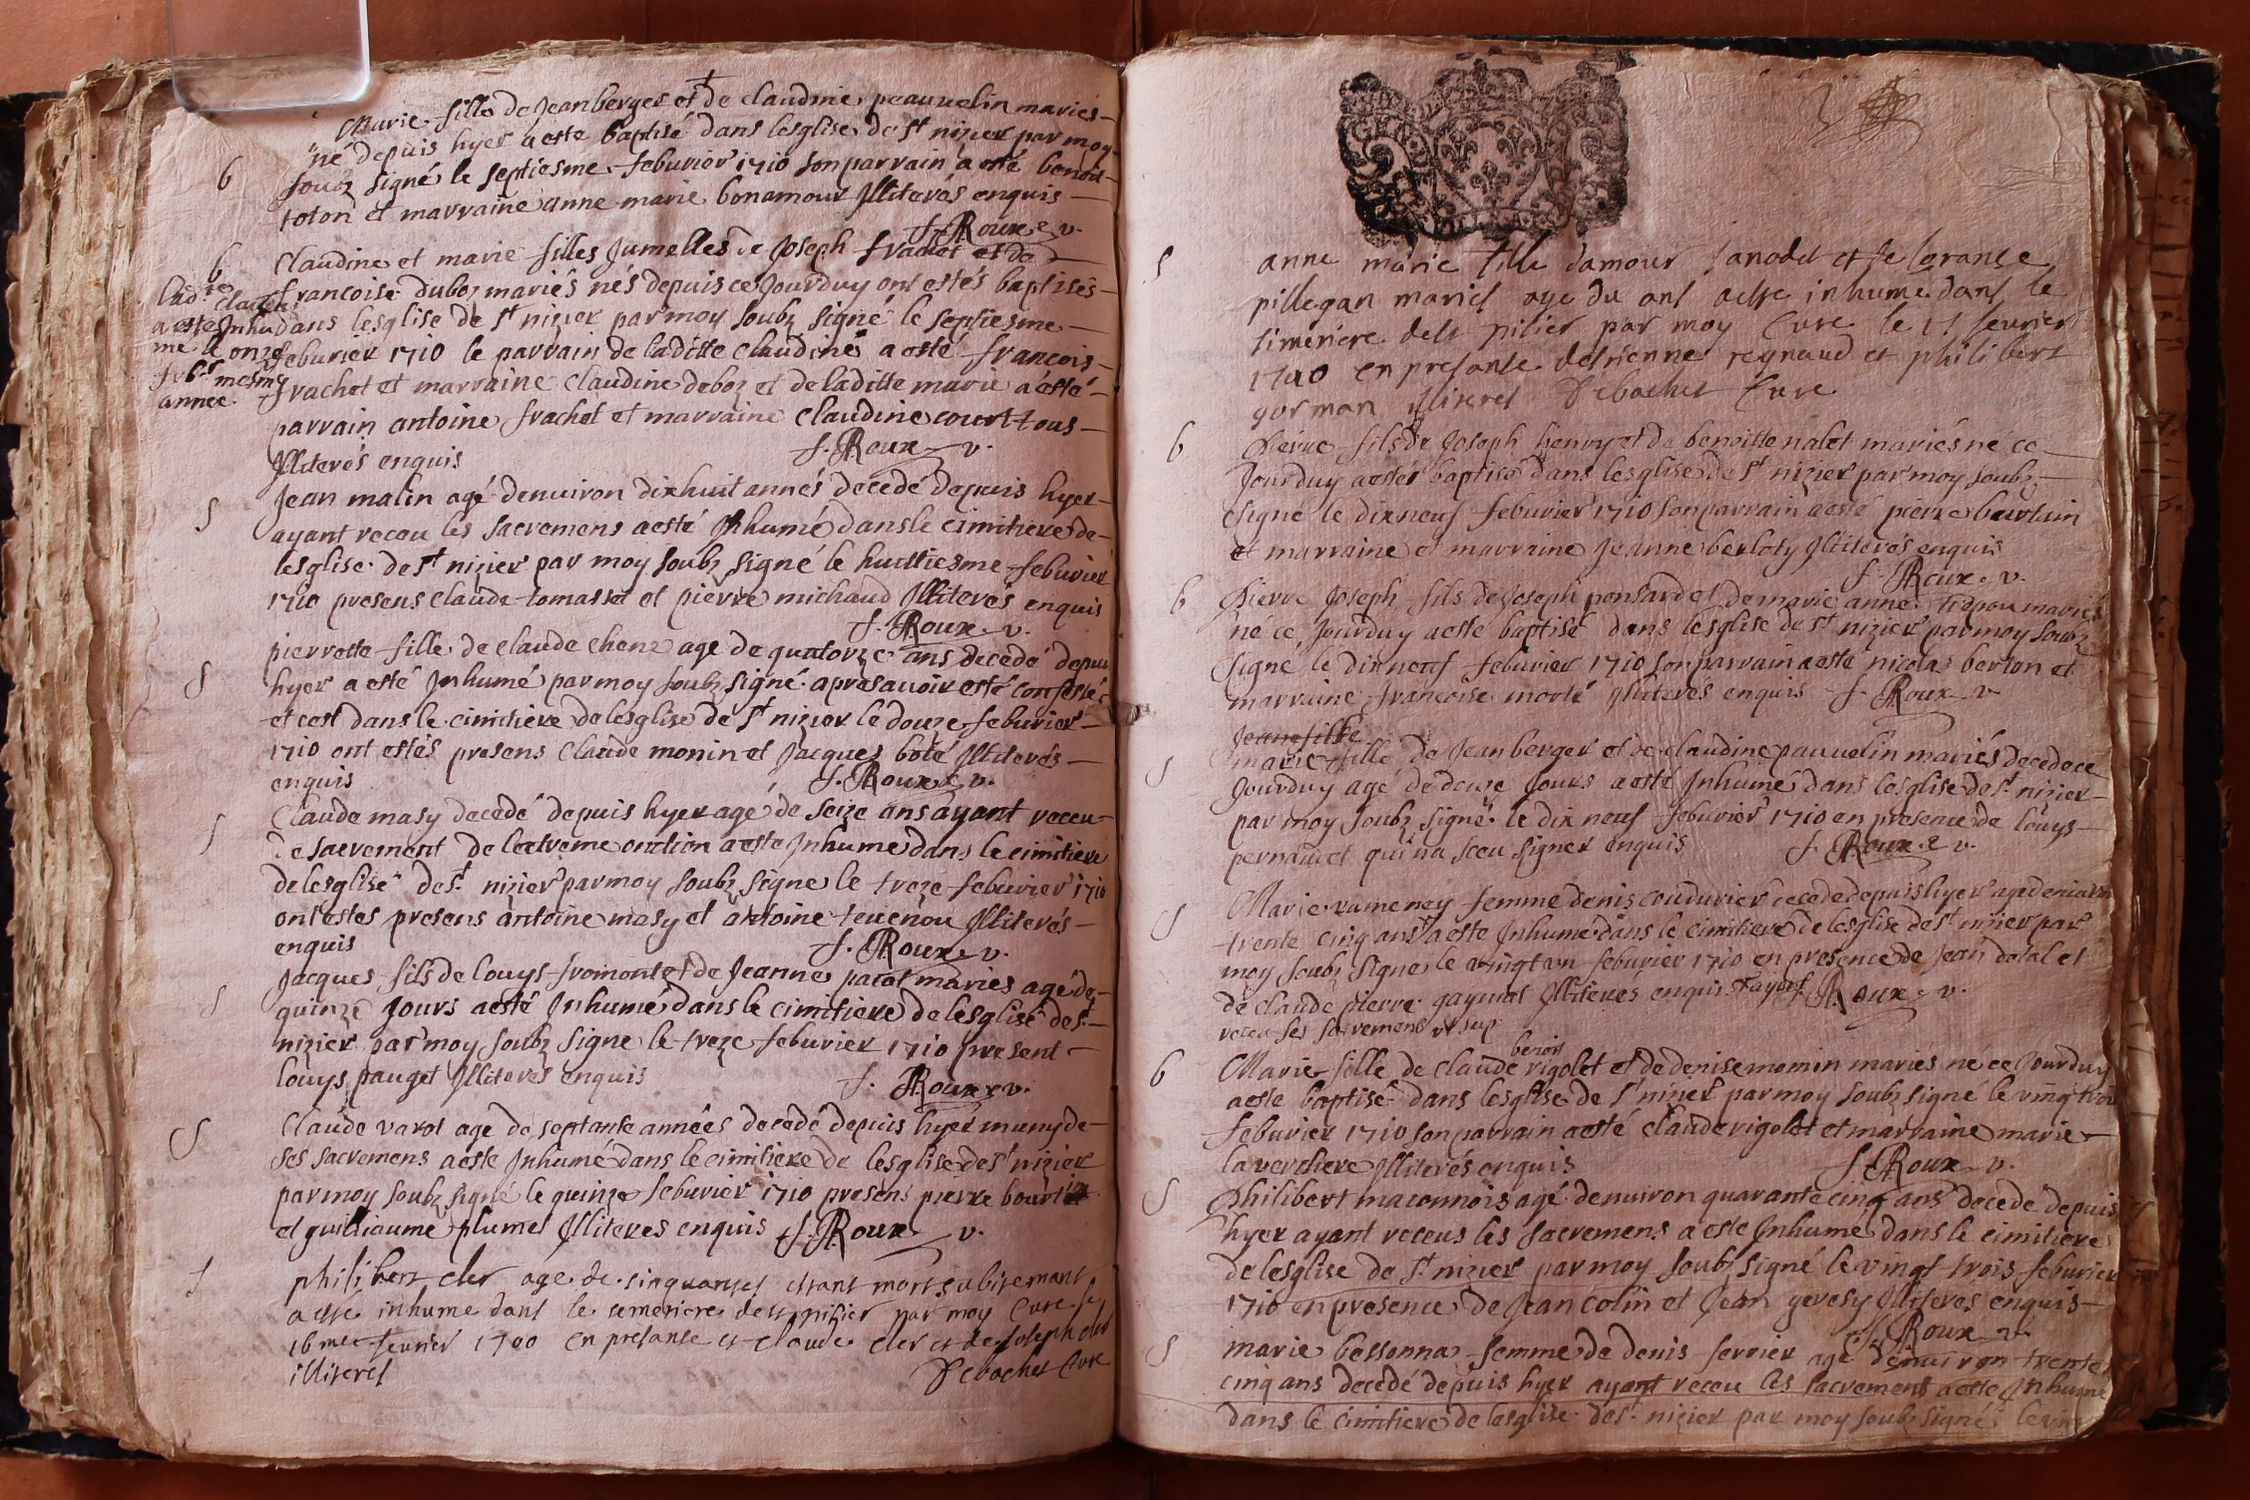 Marie fille de Jean berger et de claudine pauuelin mariés
né depuis hyer a esté baptisé dans lesglise de st nizier par moy
soubz signé le septiesme feburier 1710 son parrain a esté benoit
toton et marraine anne marie bonamour Illiterés enquis
f. Roux v.
b
b
Claudine et marie filles Jumelles de Joseph frachet et de
francoise duboz mariés nés depuis ce Jourduy ont estés baptisés
dans lesglise de st nizier par moy soubz signé le septiesme
feburier 1710 le parrain de laditte claudine a esté francois
frachet et marraine claudine deboz et de laditte marie a esté
parrain antoine frachet et marraine claudine court tous
Illiterés enquis f. Roux v.
claudine
a esté Inhu
mé le onze
mesme
année
S
Jean malin agé denuiron dixhuit annés decedé depuis hyer
ayant receu les sacremens a esté Inhumé dans le cimitiere de
lesglise de st nizier par moy soubz signé le huittiesme feburier
1710 presens claude tomasset et pierre michaud Illiterés enquis
f. Roux v.
S
pierrette fille de claude chene age de quatorze ans decedé depuis
hyer a esté Inhumé par moy soubz signé apres auoir esté confessé
et cest dans le cimitiere de lesglise de st nizier le douze feburier
1710 ont estés presens claude monin et Jacques boté Illiterés
enquis f. Roux v.
S
Claude masy decedé depuis hyer agé de seize ans ayant receu
le sacrement de lextreme onction a esté Inhumé dans le cimitiere
de lesglise de st nizier par moy soubz signé le treze feburier 1710
ont estes presens antoine masy et antoine teuenou Illiterés
enquis f. Roux v.
S
Jacques fils de louys fromont et de Jeanne pacot mariés agé de
quinze Jours a esté Inhumé dans le cimitiere de lesglise de st
nizier par moy soubz signe le treze feburier 1710 present
louys pauget Illiterés enquis f. Roux v.
S
Claude varot age de septante années decedé depuis hyer muny de
ses sacremens a esté Inhumé dans le cimitiere de lesglise de st nizier
par moy soubz signé le quinze feburier 1710 presens pierre
et guilliaume plumet Illiteres enquis f. Roux v.
S
philibert cler age de sinquante estant mort subitemant
a esté inhume dans le semetiere de st nisier par moy Cure le
16me feurier 1710 en presanse et claude cler et de Joseph cler
illiteres Debochet Cure
S
anne marie fille damour Janodet et de
pillegan maries age du ans a esté inhume dans le
simetiere de st nisier par moy Cure le 17 feurier
1710 en presante detienne regnaud et philibert
gorman illiteres Debochet Cure
b
Pierre fils de Joseph henry et de benoitte nalet mariés né ce
Jourduy a estés baptisé dans lesglise de st nizier par moy soubz
signé le dix neuf feburier 1710 son parrain a esté pierre bourtuin
et marraine et marraine Jeanne berloty Illiterés enquis
f. Roux v.
b
Pierre Joseph fils de Joseph ponsard et de marie anne mariés
né ce Jourduy a esté baptisé dans lesglise de st nizier par moy soubz
signé le dix neuf feburier 1710 son parrain a esté nicolas berton et
marraine francoise morté Illiterés enquis f. Roux v.
Jeane fille
S
marie fille de Jean berger et de claudine pauuelin mariés decedé ce
Jourduy agé de douze Jours a esté Inhumé dans lesglise de st nizier
par moy soubz signé le dix neuf feburier 1710 en presence de louys
pernaudet qui na sceu signer enquis f. Roux v.
S
Marie ramenay femme denis couduvier decedé depuis hyer agé denuiron
trente cinq ans a esté Inhumé dans le cimitiere de lesglise de st nizier par
moy soubz signe le vingt vn feburier 1710 en presence de Jean dotal et
de claude pierre gaymat Illiteres enquis ayant f. Roux v.
receu ses sacremens vt sup
b
benoit
Marie fille de claude rigolet et de denise momin mariés né ce Jourduy
a esté baptisé dans lesglise de st nizier par moy soubz signé le vingt trois
feburier 1710 son parrain a esté claude rigolet et marraine marie
la verchere Illiterés enquis f. Roux v.
S
Philibert maconnois agé denuiron quarante cinq ans decedé depuis
hyer ayant receus les sacremens a esté Inhumé dans le cimitiere
de lesglise de st nizier par moy soubz signé le vingt trois feburier
1710 en presence de Jean colin et Jean geresy Illiteres enquis
f. Roux v.
S
marie bessonna femme de denis ferrier agé denuiron trente
cinq ans decedé depuis hyer ayant receu les sacrement a esté Inhumé
dans le cimitiere de lesglise de st nizier par moy soubz signé